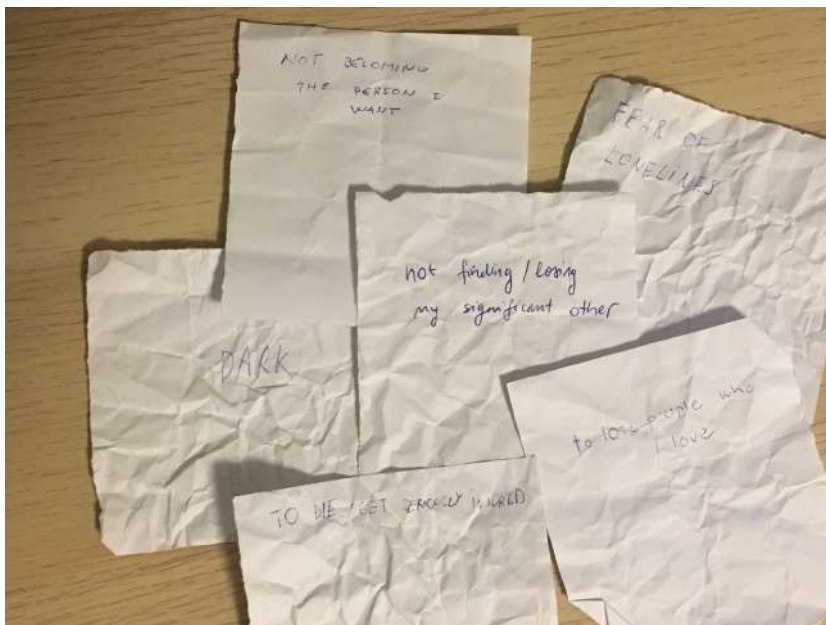 NOT BECOMING
THE PERSON I
WANT
FEAR OF
LONELINES
not finding / losing
my significant other
DARK
to lose people who
I love
TO DIE / GET INJURED